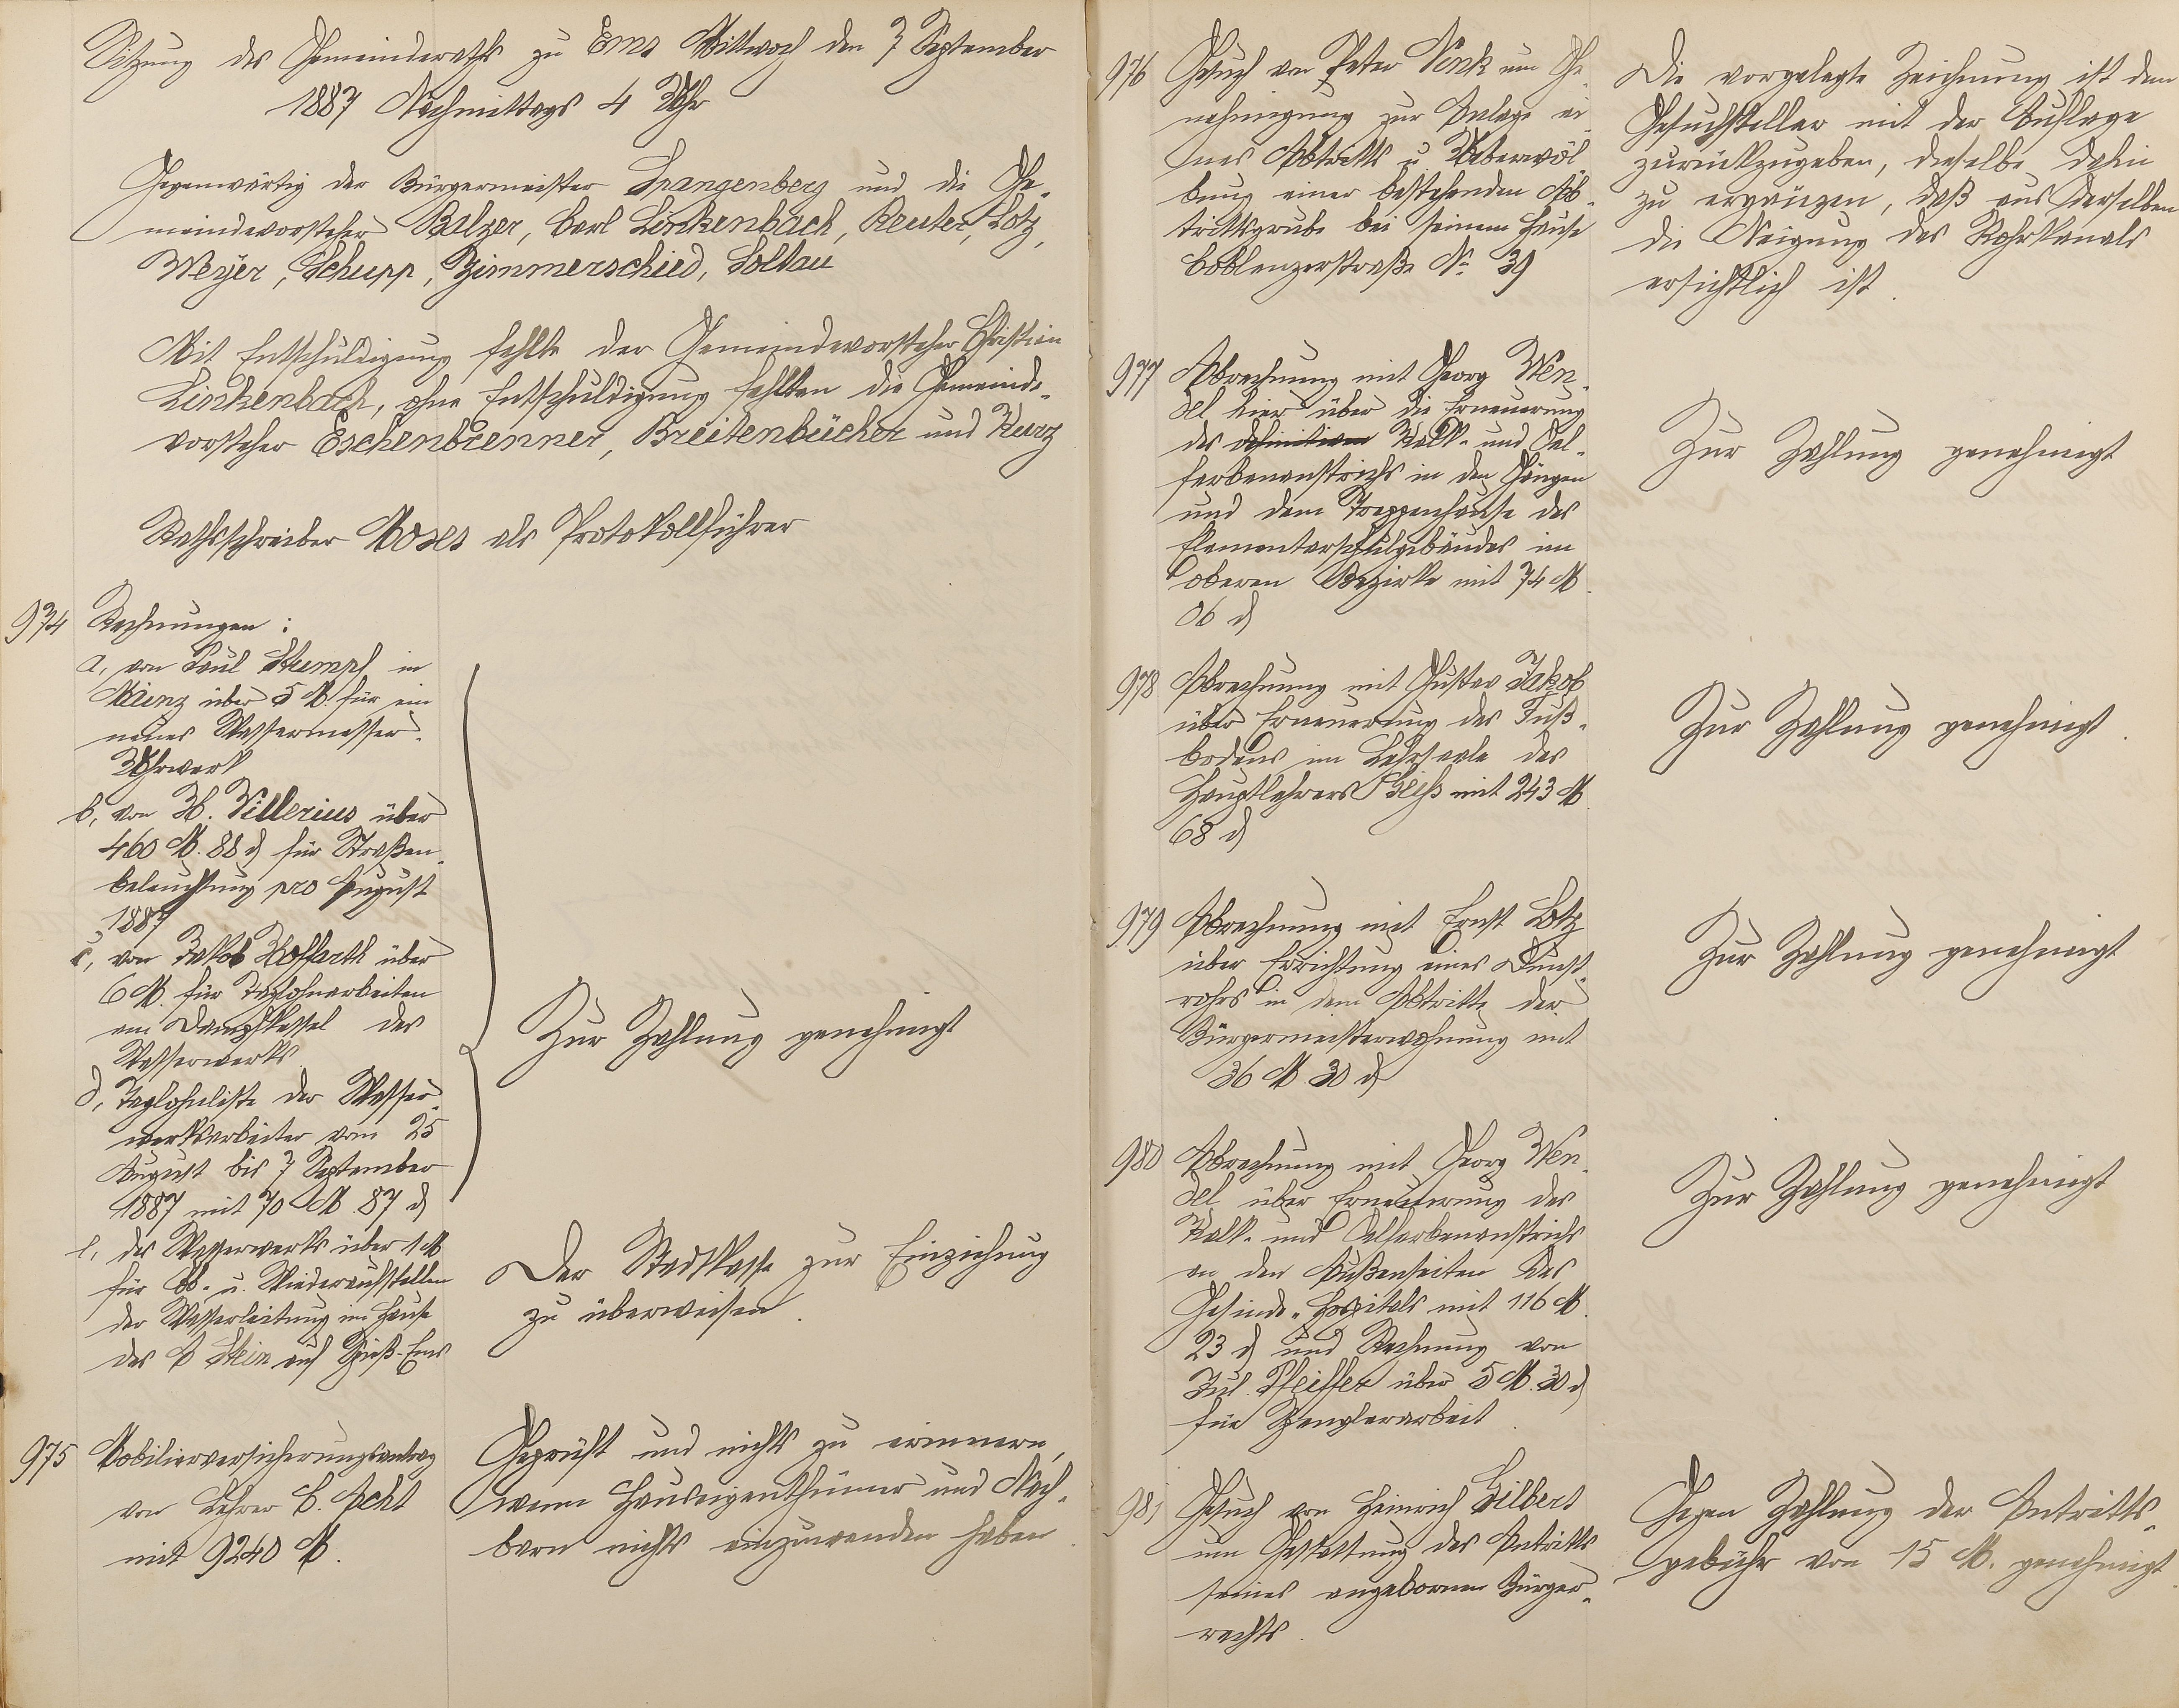 Sitzung des Gemeinderaths zu Ems Mittwoch den 7 September
1887 Nachmittags 4 Uhr
Gegenwärtig der Bürgermeister Spangenberg und die Ge-
meindevorsteher Balzer, Carl Linkenbach, Reuter, Lotz,
Meyer, Schupp, Zimmerschied, Soltau
Mit Entschuldigung fehlte der Gemeindevorsteher Christian
Linkenbach, ohne Entschuldigung fehlten die Gemeinde-
vorsteher Eschenbrenner, Breitenbücher und Kurz
Rathsschreiber Moses als Protokollführer
974 Rechnungen:
a, von Paul Stumpf in
Mainz über 5 M. für ein
neues Wassermesser-
Uhrwerk
b, von H. Villerius über
460 M. 88 d für Straßen-
beleuchtung pro August
1887
c, von Jakob Hoffarth über
6 M. für Taglohnarbeiten
am Dampfkessel des
Wasserwerks
d, Taglohnliste der Wasser-
werksarbeiter vom 25
August bis 7 September
1887 mit 70 M. 87 d
Zur Zahlung genehmigt
e, des Wasserwerks über 1 M
für Ab- u. Wiederaufstellen
der Wasserleitung im Hause
des C Stein auf Spieß-Ems
Der Stadtkasse zur Einziehung
zu überweisen.
975 Mobiliarversicherungsantrag
von Lehrer C. Acht
mit 9240 M.
Geprüft und nichts zu erinnern,
wenn Hauseigenthümer und Nach-
barn nichts einzuwenden haben
976 Gesuch von Peter Vonk um Ge-
nehmigung zur Anlage ei-
nes Abtritts u Ueberwöl-
bung einer bestehenden Ab-
trittsgrube bei seinem Hause
Coblenzerstraße No 39
Die vorgelegte Zeichnung ist dem
Gesuchsteller mit der Auflage
zurückzugeben, dieselbe dahin
zu ergänzen, daß aus derselben
die Neigung des Rohrkanals
ersichtlich ist.
977 Abrechnung mit Georg Wen-
del hier über die Erneuerung
des definitiven Kalk- und Oel-
farbenanstrichs in den Gängen
und dem Treppenhause des
Elementarschulgebäudes im
oberen Bezirke mit 74 M.
06 d
Zur Zahlung genehmigt
978 Abrechnung mit Gustav Jakob
über Erneuerung des Fuß-
bodens im Lehrsaale des
Hauptlehrers Reiß mit 243 M.
68 d
Zur Zahlung genehmigt.
979 Abrechnung mit Ernst Lotz
über Errichtung eines Dunst-
rohrs in dem Abtritte der
Bürgermeisterwohnung mit
36 M. 30 d
Zur Zahlung genehmigt
980 Abrechnung mit Georg Wen-
del über Erneuerung des
Kalk- und Oelfarbenanstrichs
an den Außenseiten des
Gesinde-Hospitals mit 116 M.
23 d und Rechnung von
Jul. Pfeiffer über 5 M. 30 d
für Spenglerarbeit.
Zur Zahlung genehmigt
981 Gesuch von Heinrich Gilbert
um Gestattung des Antritts
seines angebornen Bürger-
rechts.
Gegen Zahlung der Antritts-
gebühr von 15 M. genehmigt.